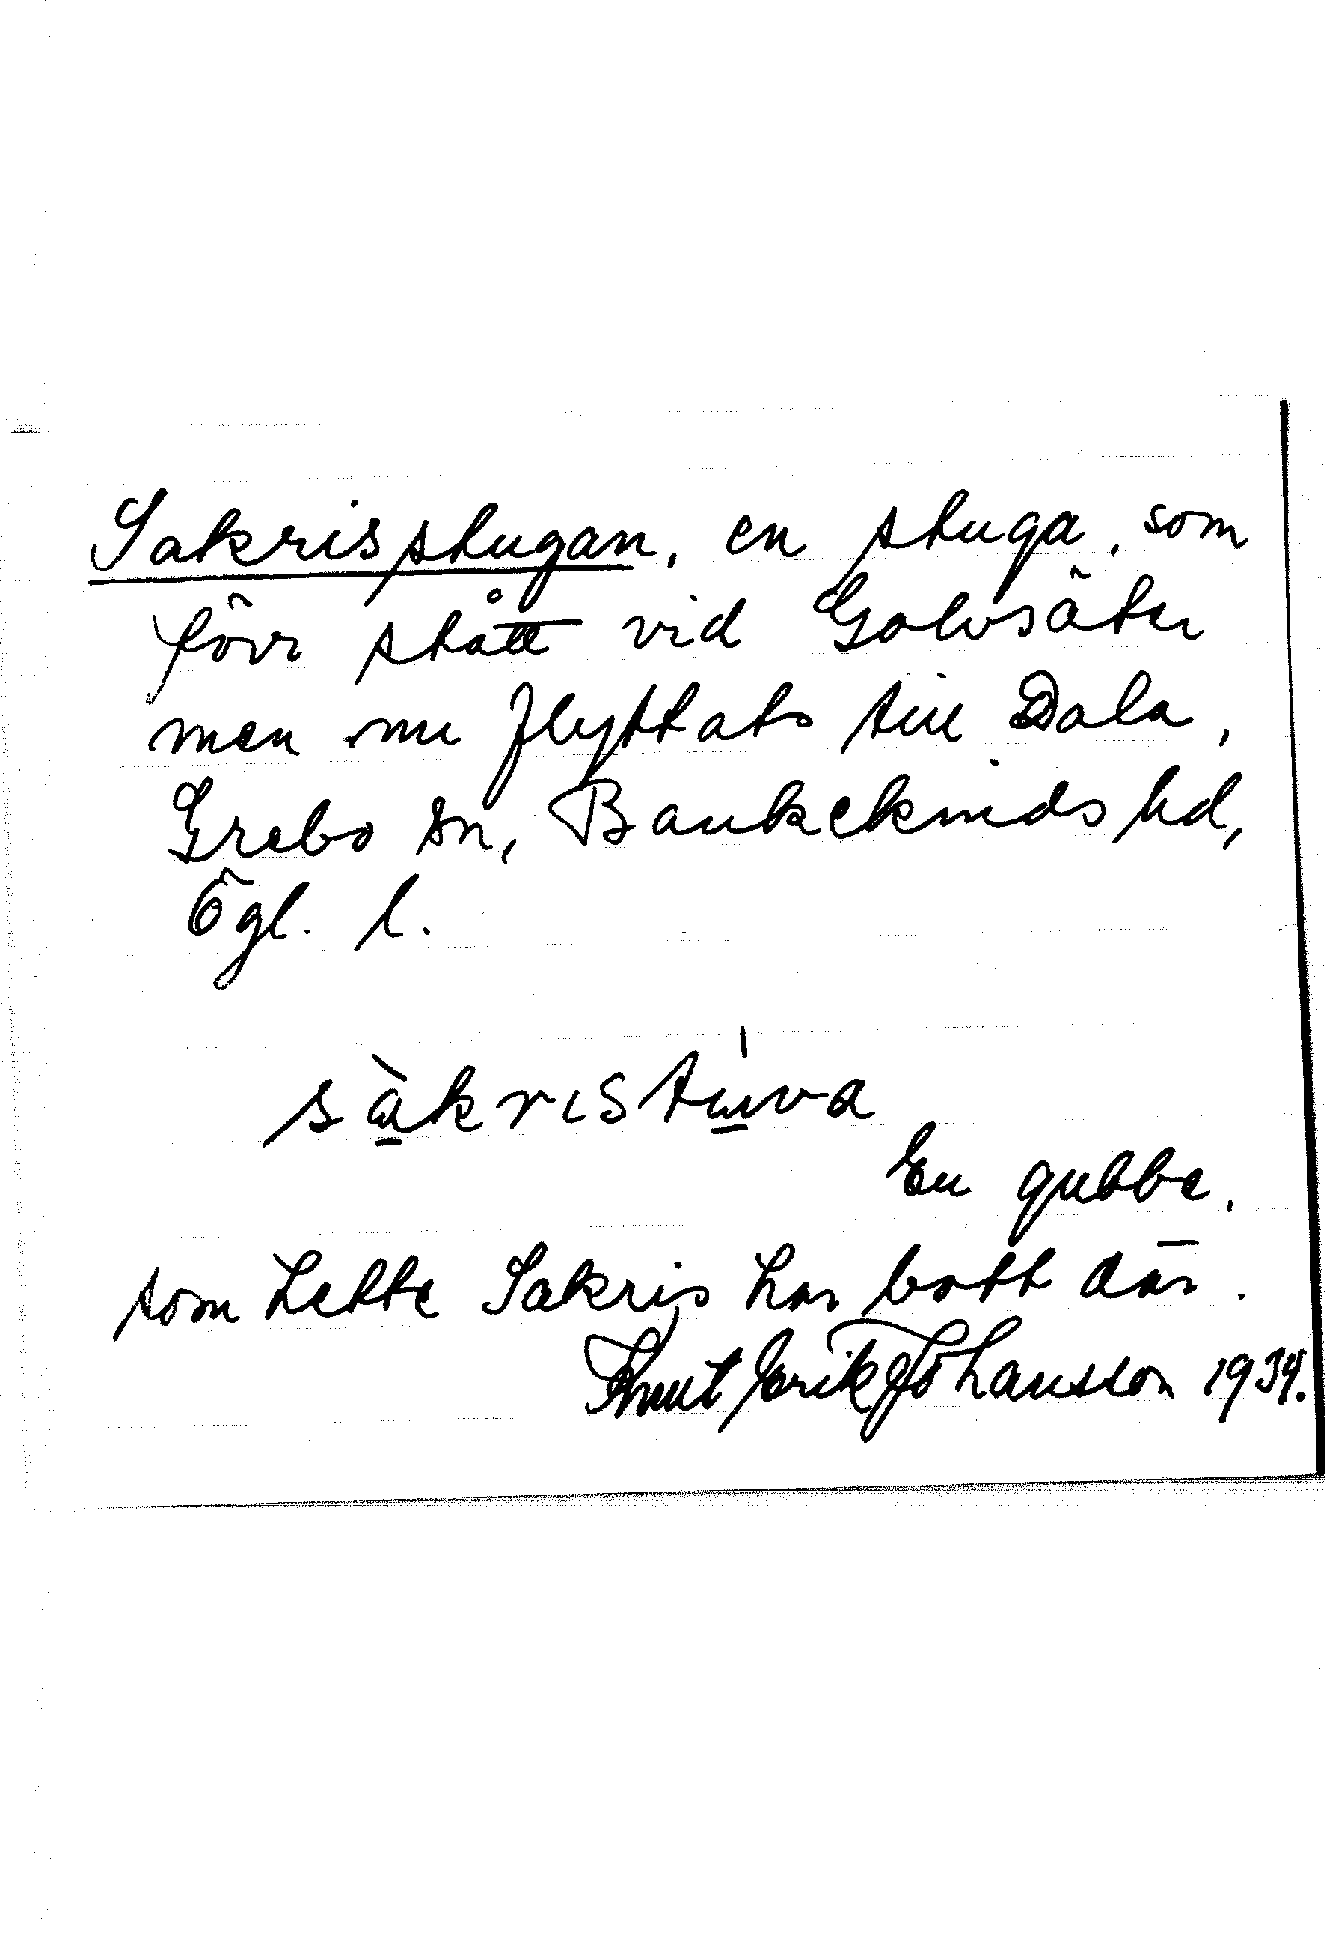 Sakrisstugan, en stuga, som
förr stått vid Golvsäter
men nu flyttats till Dala,
Grebo sn, Bankekinds hd,
Ögl. l.
sàkristúva
En gubbe,
som hette Sakris har bott där.
Knut Erik Johansson 1934.